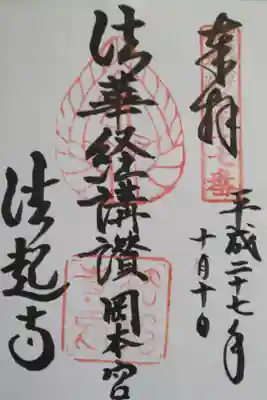 奉拝
平成二十七年
十月十日
法華経講讃 岡本宮
法起寺